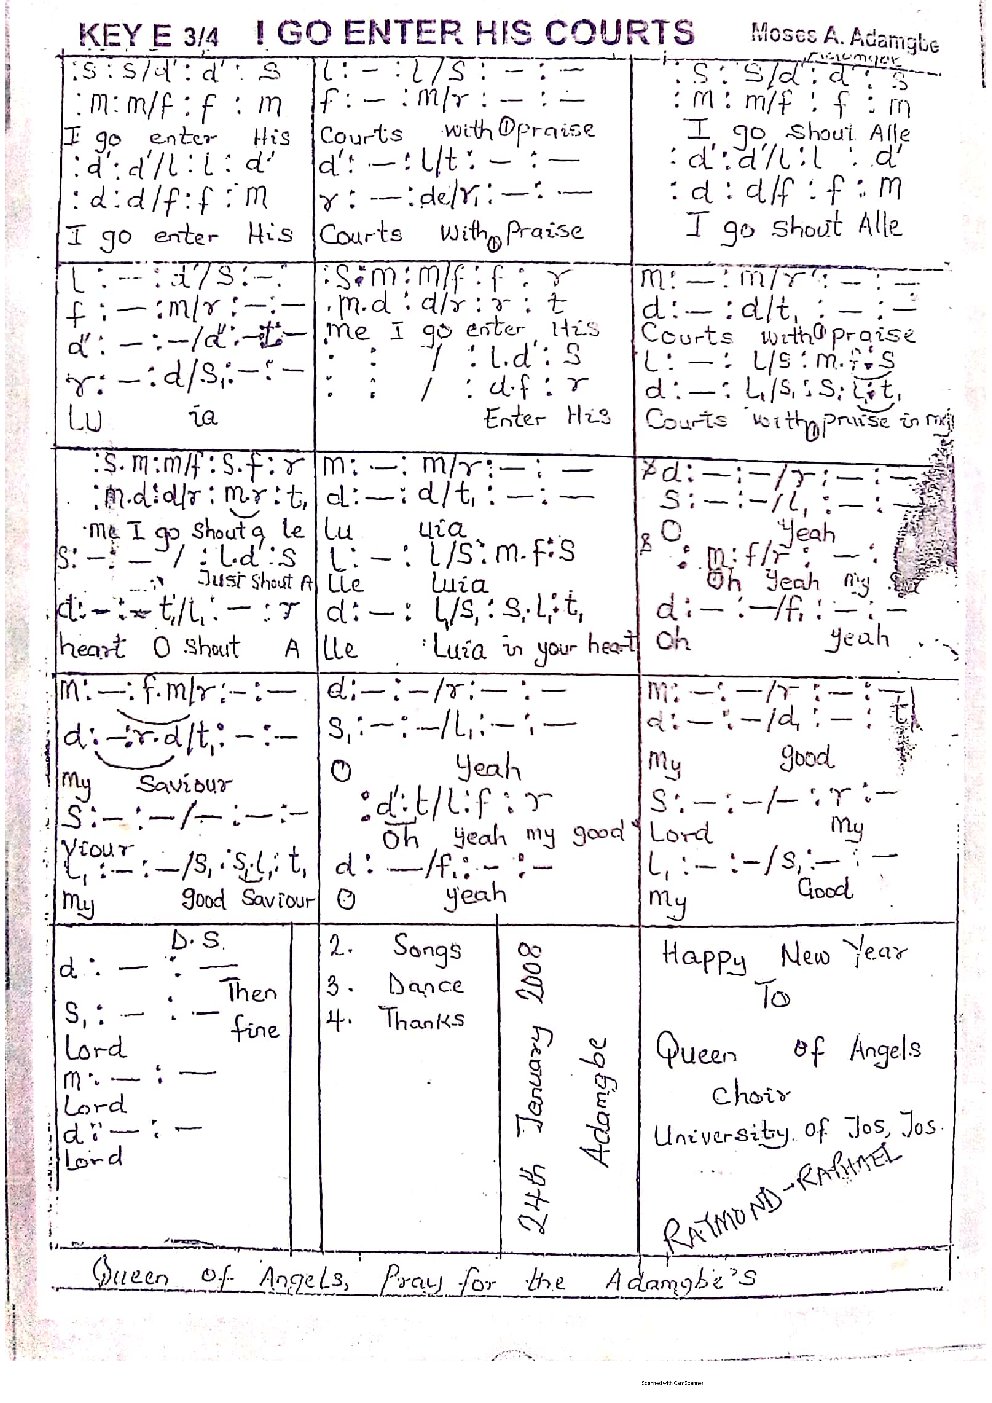 KEY E 3/4 I GO ENTER HIS COURTS Moses A. Adamgbe
:s : s/d' : d' : s
:m : m/f : f : m
I go enter His
:d' : d'/l : l : d'
:d : d/f : f : m
I go enter His
l : – : l/s : – : –
f : – : m/r : – : –
Courts with praise
d' : – : l/t : – : –
r : – : de/r, : – : –
Courts with Praise
:s : s/d' : d' : s
:m : m/f : f : m
I go shout Alle
:d' : d'/l : l : d'
:d : d/f : f : m
I go shout Alle
l : – : d'/s : – :
f : – : m/r : – : –
d' : – : –/d' : – t : –
r : – : d/s, : – : –
Lu ia
:s . m : m/f : f : r
. m . d : d/r : r : t
me I go enter His
: : / : l . d' : s
: : / : d . f : r
Enter His
m : – : m/r : – : –
d : – : d/t, : – : –
Courts with praise
l : – : l/s : m . f : s
d : – : l,/s, : s, . l, : t,
Courts with praise in my
:s . m : m/f : s . f : r
:m . d : d/r : m . r : t,
me I go shout a le
s : – : – / : l . d' : s
Just shout A
d : – : – t,/l, : – : r
heart O shout A
m : – : m/r : – : –
d : – : d/t, : – : –
Lu yia
l : – : l/s : m . f : s
lle luia
d : – : l,/s, : s, . l, : t,
lle Luia in your heart
d : – : –/r : – : –
s : – : –/l, : – : –
O Yeah
: m : f/r : – :
Oh Yeah my
d : – : –/f, : – : –
Oh yeah
m : – : f . m/r : – : –
d : – : r . d/t, : – : –
My Saviour
s : – : –/– : – : –
viour
l, : – : –/s, : s, . l, : t,
My good Saviour
d : – : –/r : – : –
s, : – : –/l, : – : –
O Yeah
: d' : t/l : f : r
Oh yeah my good
d : – –/f, : – : –
O yeah
m : – : –/r : – : –
d : – : –/d, : – : t,
My good
s : – : –/– : r : –
Lord My
l, : – : –/s, : – : –
My Good
D.S.
d : – : –
Then
s, : – : –
fine
Lord
m : – : –
Lord
d : – : –
Lord
2. Songs
3. Dance
4. Thanks
24th January 2008
Adamgbe
Happy New Year
To
Queen of Angels
Choir
University of Jos, Jos.
RAYMOND-RAPHAEL
Queen of Angels, Pray for the Adamgbe's
Scanned with CamScanner